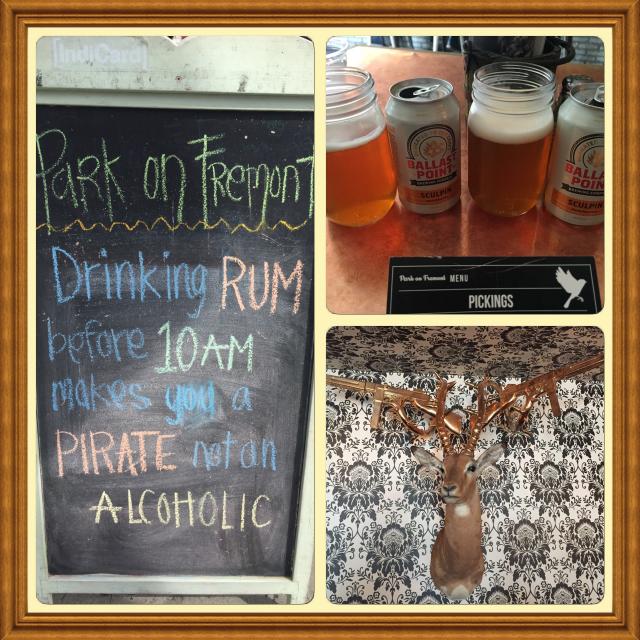 IndiCard
Park on Fremont
Drinking RUM
before 10AM
makes you a
PIRATE not an
ALCOHOLIC
BALLAST
POINT
BREWING
SCULPIN
BALLAST
POINT
SCULPIN
Park on Fremont MENU
PICKINGS